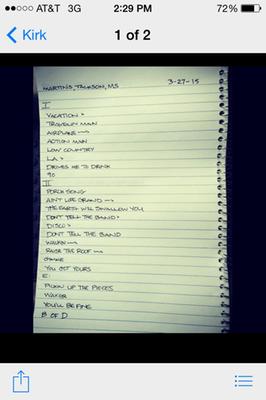 AT&T 3G 2:29 PM 72%
Kirk 1 of 2
MARTINS, JACKSON, MS 3-27-15
I
VACATION >
TRAVELIN MAN
AIRPLANE ~>
ACTION MAN
LOW COUNTRY
L.A >
DRIVES ME TO DRINK
90
II
PORCH SONG
AIN'T LIFE GRAND ~>
THE EARTH WILL SWALLOW YOU
DON'T TELL THE BAND >
DISCO >
DON'T TELL THE BAND
WALKIN ~>
RAISE THE ROOF ~>
CHAINS
YOU GOT YOURS
E:
PICKIN UP THE PIECES
WALKER
YOU'LL BE FINE
B OF D